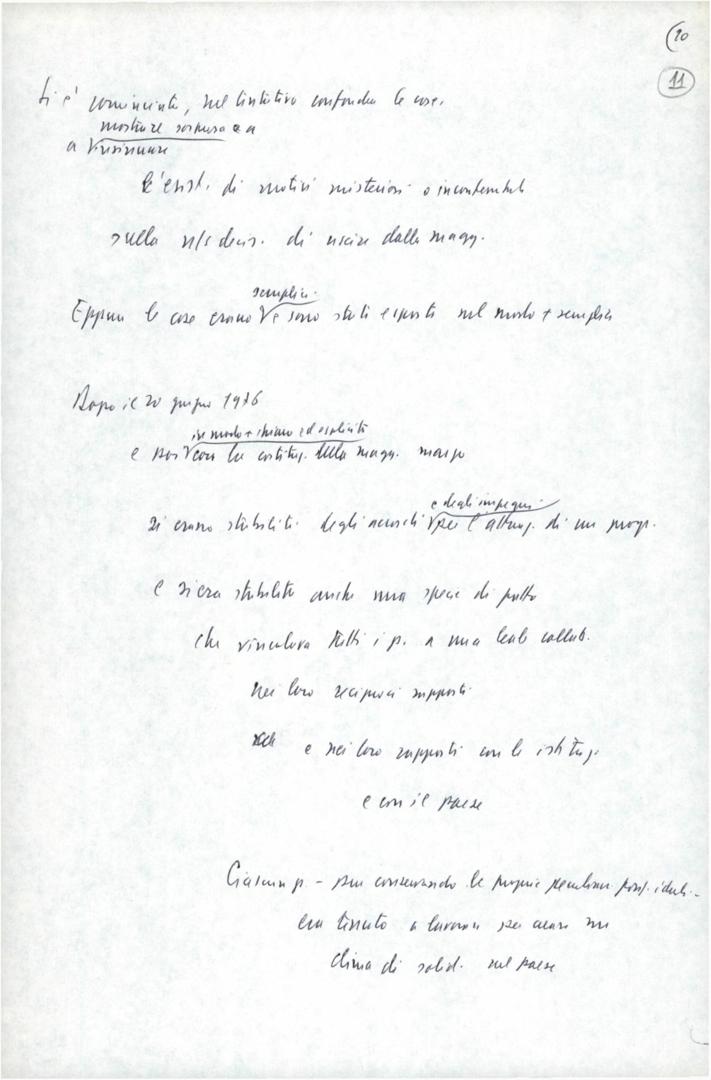 (20
11
Si è cominciato, nel tentativo confondere le cose,
mostrare sorpresa e a
a insinuare
l'esist. di motivi misteriosi o incontenibili
sulla n/s decis. di uscire dalla magg.
semplici.
Eppure le cose erano e sono stati esposti nel modo + semplice
Dopo il 20 giugno 1976
in modo + chiaro ed esplicito
e poi con la costituz. della magg. marzo
e degli impegni
si erano stabiliti degli accordi per l'attuaz. di un progr.
e si era stabilito anche una specie di patto
che vincolava tutti i p. a una leale collab.
nei loro reciproci rapporti
e nei loro rapporti con le istituz.
e con il paese
Ciascun p. - pur conservando le proprie peculiari posiz. ideali -
era tenuto a lavorare per creare un
clima di solid. nel paese